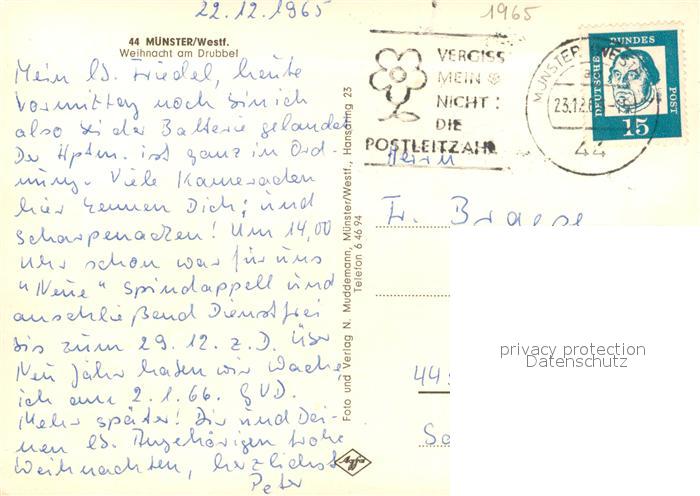 22.12.1965
1965
44 MÜNSTER/Westf.
Weihnacht am Drubbel
Mein lb. Friedel, heute
Vormittag noch bin ich
also bei der Batterie gelandet
Der Hptm. ist ganz in Ord-
nung. Viele Kameraden
hier kennen Dich; und
Um 14,00
Uhr schon war für uns
"Neue" Spindappell und
anschließend Dienstfrei
bis zum 29.12. z.D. Über
Neu Jahr haben wir Wache
ich am 2.1.66. GVD.
Mehr später! Dir und Dei-
nen lb. Angehörigen frohe
Weihnachten, herzlichst
Peter
Foto und Verlag N. Muddemann, Münster/Westf., Hansaring 23
Telefon 6 46 94
Agfa
VERGISS
MEIN
NICHT:
DIE
POSTLEITZAHL
MÜNSTER (WESTF)
a
23.12.6
44
DEUTSCHE BUNDESPOST
15
Herrn
Fr.
44
privacy protection
Datenschutz